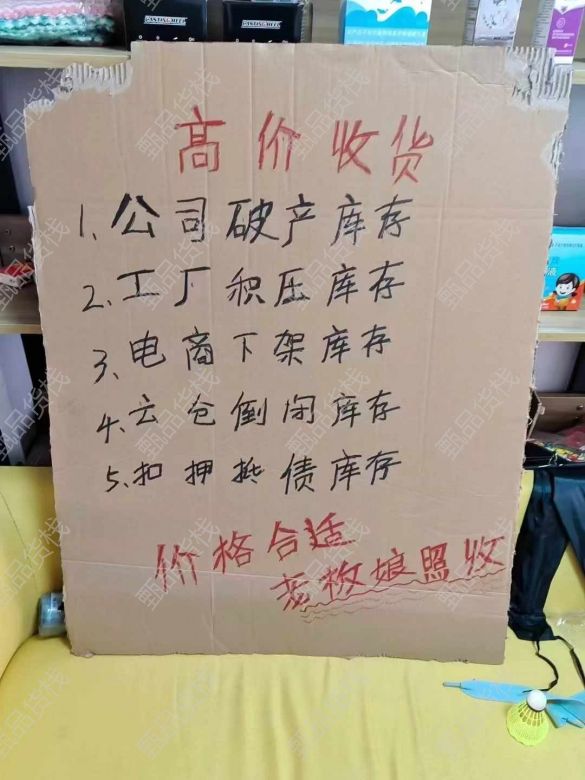 高价收货
1、公司破产库存
2、工厂积压库存
3、电商下架库存
4、云仓倒闭库存
5、扣押抵债库存
价格合适
老板娘照收
甄品货栈